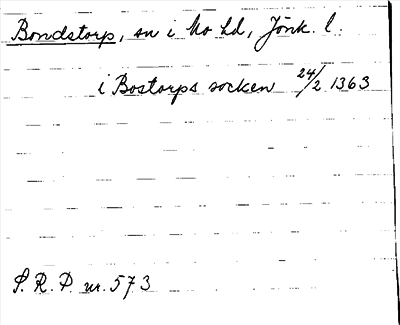 Bondstorp, sn i Mo hd, Jönk. l.
i Bostorps socken 24/2 1363
S. R. P. nr. 573